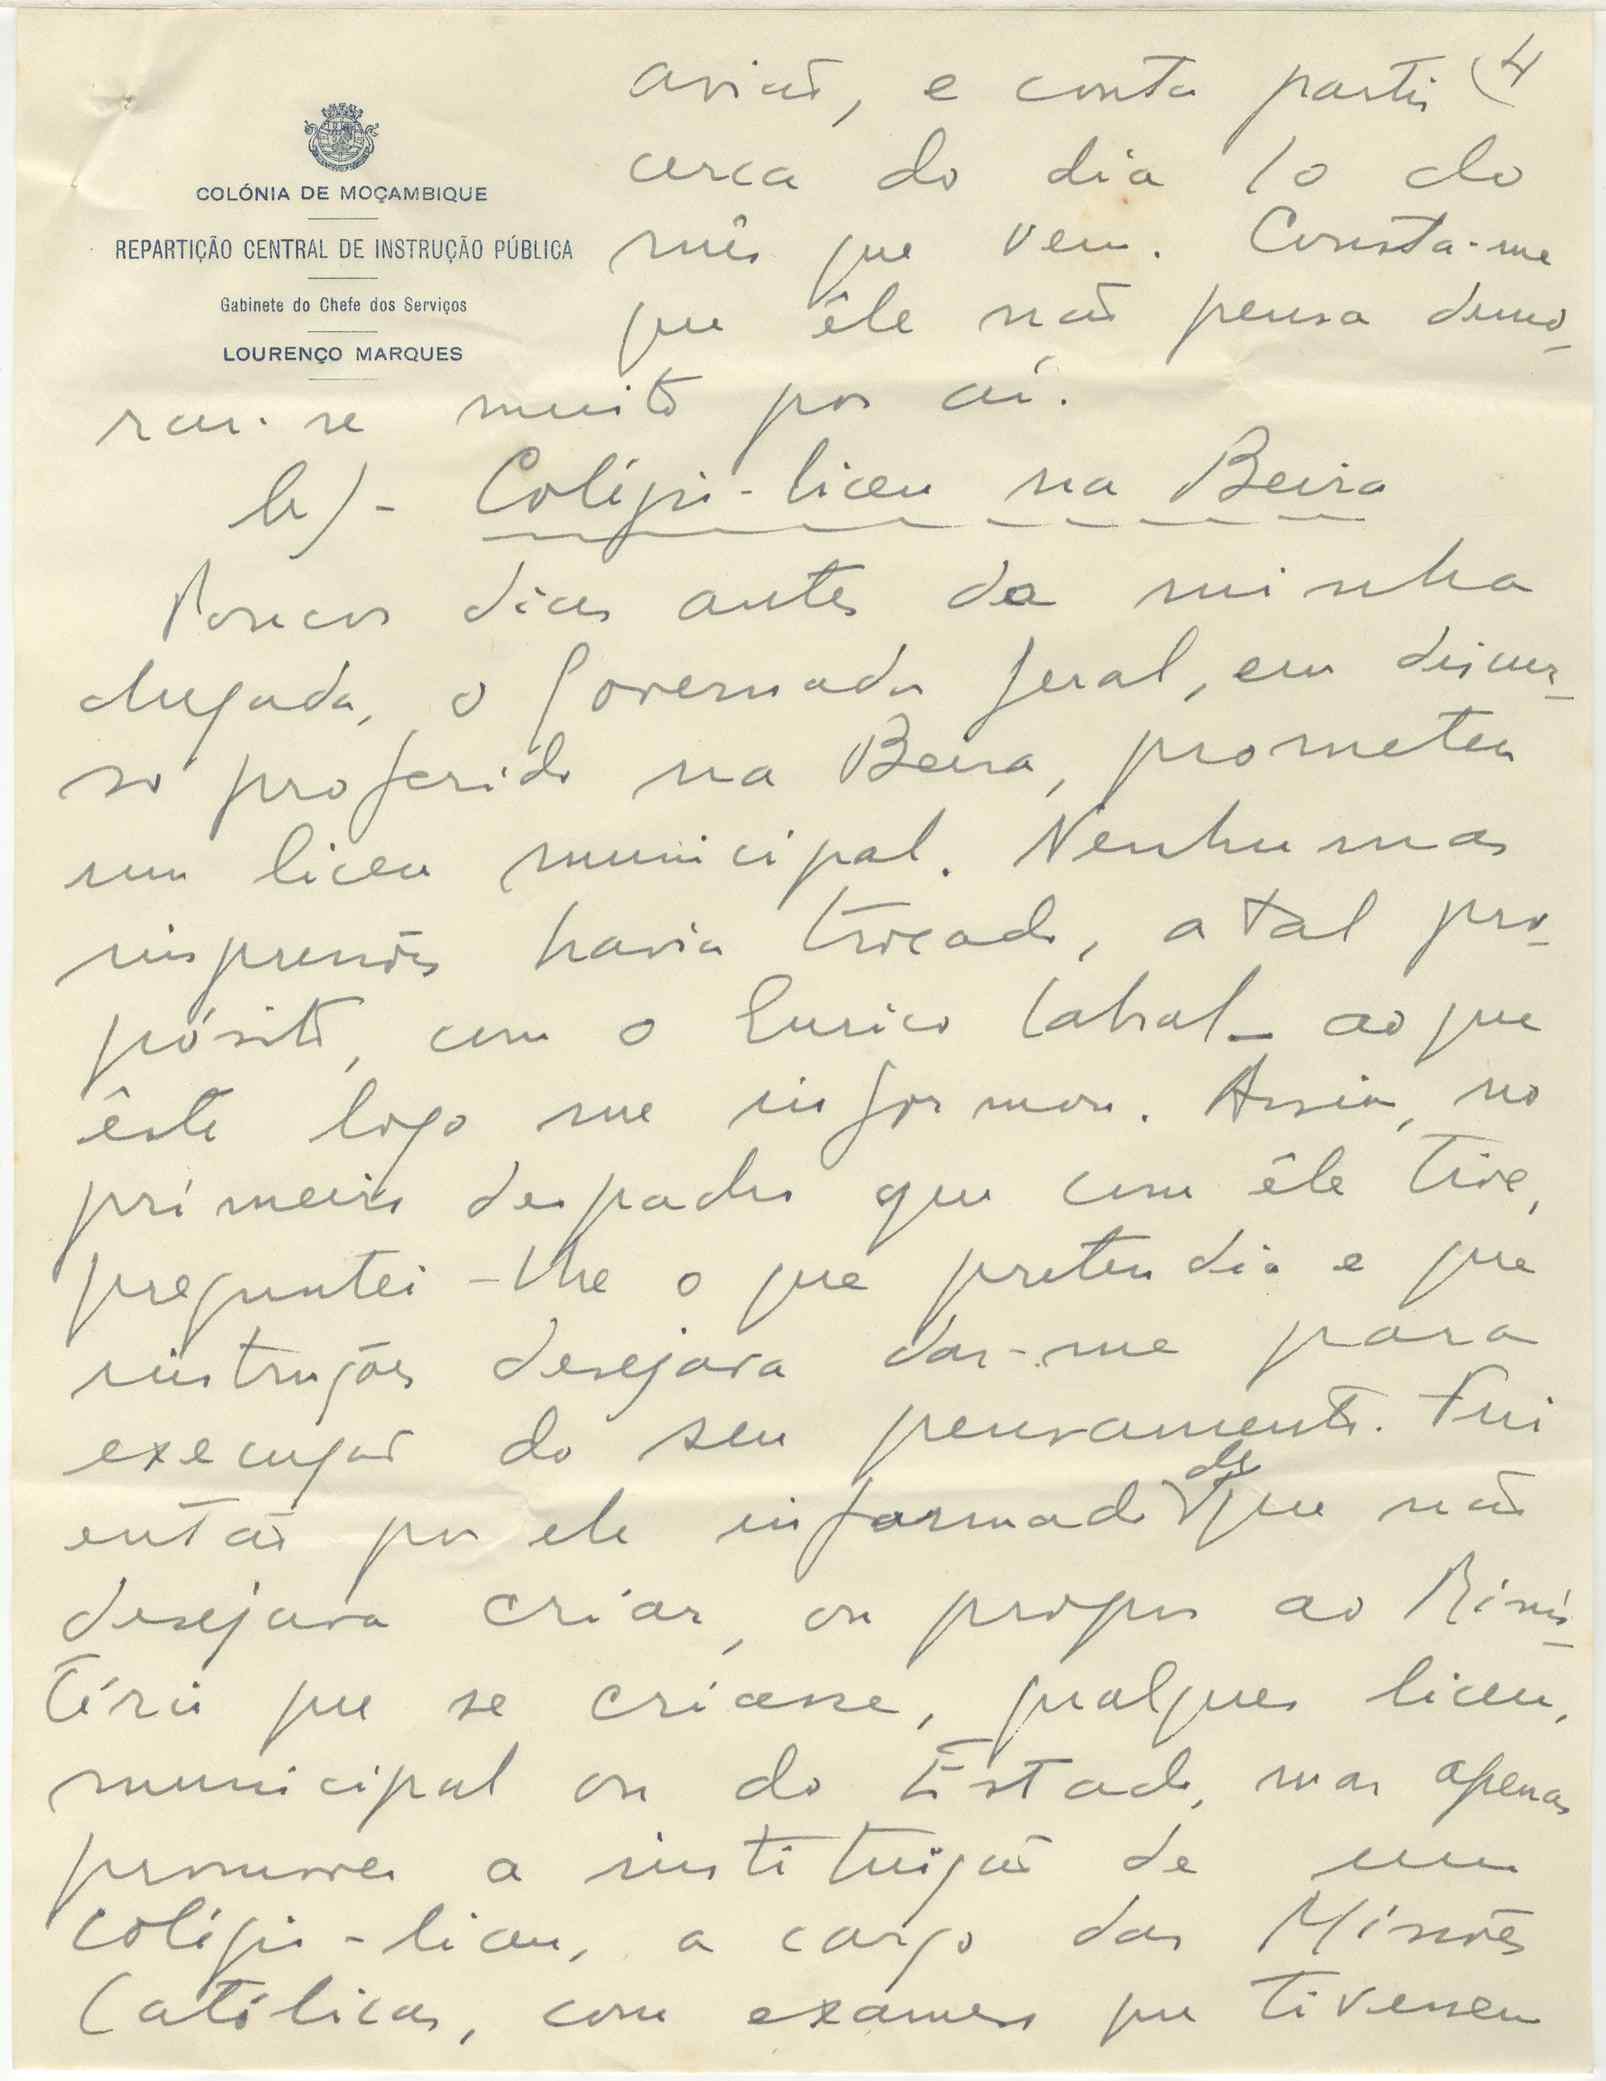 COLÓNIA DE MOÇAMBIQUE
REPARTIÇÃO CENTRAL DE INSTRUÇÃO PÚBLICA
Gabinete do Chefe dos Serviços
LOURENÇO MARQUES
4
avião, e conta partir
cerca do dia 10 do
mês que vem. Consta-me
que êle não pensa demo-
rar-se muito por aí.
b)- Colégio-liceu na Beira
Poucos dias antes da minha
chegada, o Governador Geral, em discur-
so proferido na Beira, prometeu
um liceu municipal. Nenhumas
impressões havia trocado, a tal pro-
pósito, com o Eurico Cabral - ao que
êste logo me informou. Assim, no
primeiro despacho que com êle tive,
preguntei-lhe o que pretendia e que
instruções desejava dar-me para
execução do seu pensamento. Fui
então por ele informado de que não
desejava criar, ou propor ao Minis-
tério que se criasse, qualquer liceu,
municipal ou do Estado, mas apenas
promover a instituição de um
colégio-liceu, a cargo das Missões
Católicas, com exames que tivessem